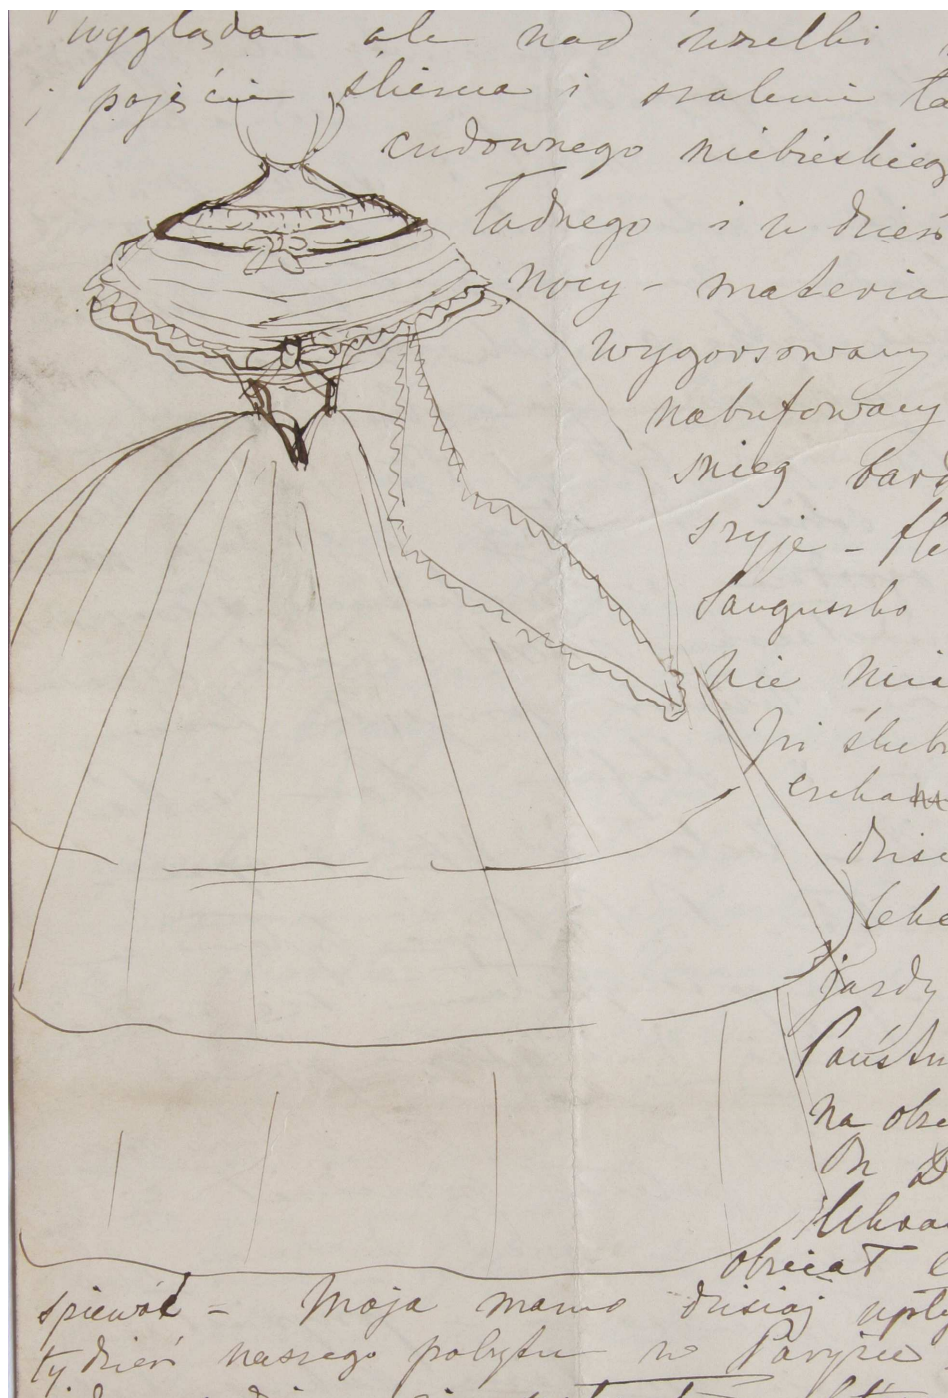 wygląda ale nad wszelki
i pojęcie śliczna i szalenie ła
cudownego niebieskieg
ładnego i w dzień
nocy - materia
wygorsowany
nabufowany
śnieg bard
szyję -
Sanguszko
nie mia
ślub
czeka
dzisi
leke
jazdy
Państw
na obi
On
Ukra
obiecał
śpiewać - Moja mamo dzisiaj upły
tydzień naszego pobytu w Paryżu